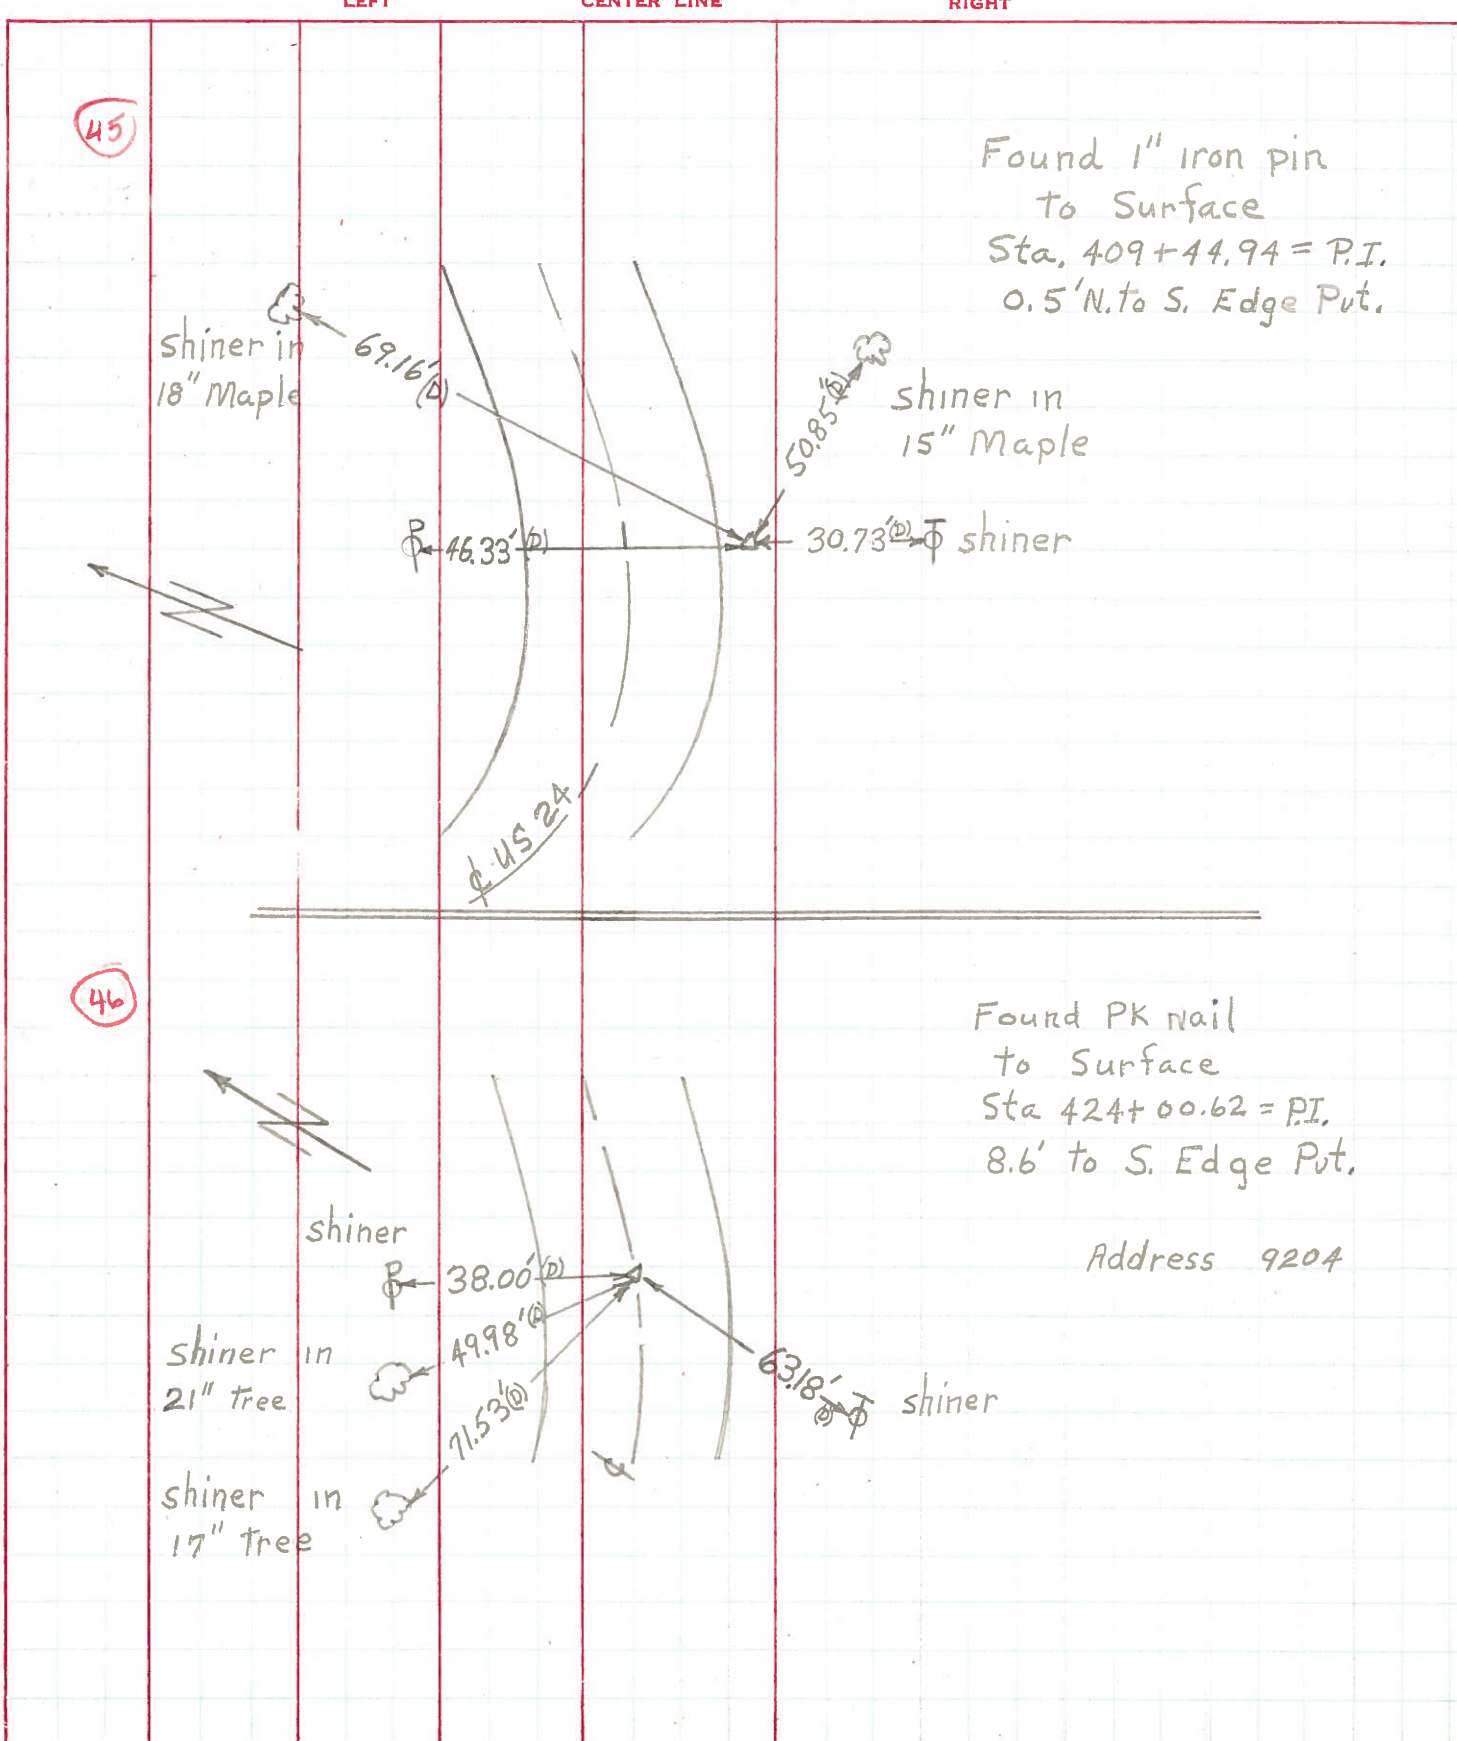 LEFT CENTER LINE RIGHT
45
Found 1" iron pin
to Surface
Sta. 409+44.94 = P.I.
0.5' N. to S. Edge Pvt.
shiner in
18" Maple
69.16' (D)
50.85' (D)
shiner in
15" Maple
P
46.33' (D)
30.73' (D)
T
shiner
℄ US 24
46
Found PK nail
to Surface
Sta 424+00.62 = P.I.
8.6' to S. Edge Pvt.
Address 9204
shiner
P
38.00' (D)
49.98' (D)
shiner in
21" Tree
71.53' (D)
63.18' (D)
T
shiner
shiner in
17" Tree
℄